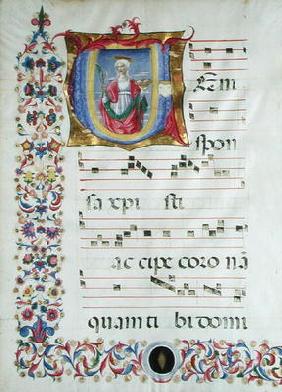 V
Eni
spon
sa xpi sti
ac cipe coro nā
quam ti bi domi